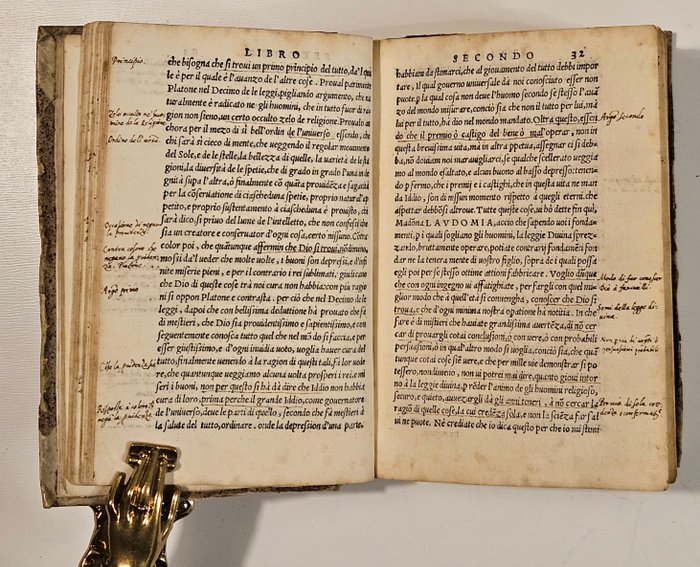 LIBRO
che bisogna che si trovi un primo principio del tutto, da'l qua
le è per il quale è l'avanzo de l'altre cose. Proual parimente
Platone nel Decimo de le leggi, pigliando argumento, che na
turalmente è radicato ne gli huomini, che in tutto fuor di ra
gion non sieno, un certo occulto zelo de religione. Proualo an
chora per il mezo di sì bell'ordin de l'universo, essendo, che
chi sarà sì cieco di mente, che ueggendo il regolar mouimento
del Sole, e de le stelle, la bellezza di quelle, la uarietà de le sta
gioni, la diuersità de le spetie, che di grado in grado l'una in de
gnità supa l'altra, ò finalmente cō quāta prouidēza e sagacità
per la cōseruatione di ciaschuna spetie, proprio natural ap
petito, e proprio sustegno à ciascheduna è prouisto, chi
sarà dico, sì priuo del lume de l'intelletto, che non confessi che
sia un creatore e conseruator d'ogni cosa, certo nissuno. Contra
color poi, che quātunque affermin che Dio si troui, nōdimeno,
mossi da'l ueder che molte uolte, i buoni son depressi, e d'infi
nite miserie pieni, e per il contrario i rei sublimati, giudicano
che Dio di queste cose trà noi cura non habbia: con più ragio
ni si oppon Platone e contrasta. per ciò che nel Decimo de le
leggi, dapoi che con bellissima deduttione hà prouato che fà
di mestieri, che Dio sia prouidentissimo e sapientissimo, e con
seguentemente conosca tutto quel che nel mōdo si faccia, e per
esser giustissimo, e d'ogni inuidia uoto, uoglia hauer cura del
tutto, finalmente uenendo à la ragion di questi tali, fà lor uole
re, che quantunque ueggiamo alcuna uolta prosperi i rei, e mi
seri i buoni, non per questo si hà dà dire che Iddio non habbia
cura di loro, prima perche il grande Iddio, come gouernatore
de l'uniuerso, deue le parti di quello, secondo che fà mestieri à
la salute del tutto, ordinare. onde la depression d'una parte,
Principio.
Zelo occulto ne'
Ordine de l'
Contra coloro che
negano la
Argo primo
Che la
Risposta à coloro che
SECONDO 32
habbiam da stimarci, che al giouamento del tutto debbi impor
tare, il qual gouerno uniuersale dà noi conosciuto esser non
puote. p la qual cosa non deue l'huomo secondo se stesso l'auā
zo del mōdo misurare, conciò sia che non il tutto per lui, ma
lui per il tutto, hà dio nel mondo mandato. Oltra questo, essen
do che il premio ò castigo del bene ò mal'operar, non in
questa breuissima uita, ma in altra ppetua, assegnar ci si deb
ba, nō douiam noi marauigliarci, se qualche scellerato ueggia
mo al mondo esaltato, e alcun buono al basso depresso: tenen
do p fermo, che i premij e i castighi, che in questa uita ne man
da Iddio, son di nissun momento rispetto à quegli eterni, che
aspettar debbōsi altroue. Tutte queste cose, ui hò dette fin qui,
Madōna LAVDOMIA, acciò che sapendo uoi i fonda=
menti, p i quali sogliano gli huomini, la leggie Diuina sprez=
zarlo, bruttamente operare, potiate contrarij fondamēti fon=
dar ne la tenera mente di uostro figlio, sopra de i quali possa
egli poi per se stesso ottime attioni fabbricare. Voglio dūque
che con ogni ingegno ui affatighiate, per fargli con quel mi=
glior modo che à quel'età si conuengha, conoscer che Dio si
troua, e che d'ogni minima nostra opatione hà notitia. In che
fare è di mistieri che hauiate grandissima auertēza, di nō cer
car di prouargli cotai conclusioni, ò con uere, ò con probabili
persuasioni, ò in qual'altro modo si uoglia, conciò sia, che quā
tunque cotai cose siē uere, e che per mille uie demonstrar si po
tessero, nōdimeno, non ui potrei mai dire, quanto gioui intor
no à la legge diuina, p rēder l'animo de gli huomini religioso,
securo, e queto, auuezargli dà gli anni teneri, à nō cercar la
ragiō di quelle cose, la cui credēza sola, e non la sciēza far sal
ui ne puote. Nè crediate che io dica questo per che io mi stimi
Argo secondo
Modo di far conoscer
Iddio à fanciulli.
Semi della legge di-
uina.
Non
persuasioni probabili